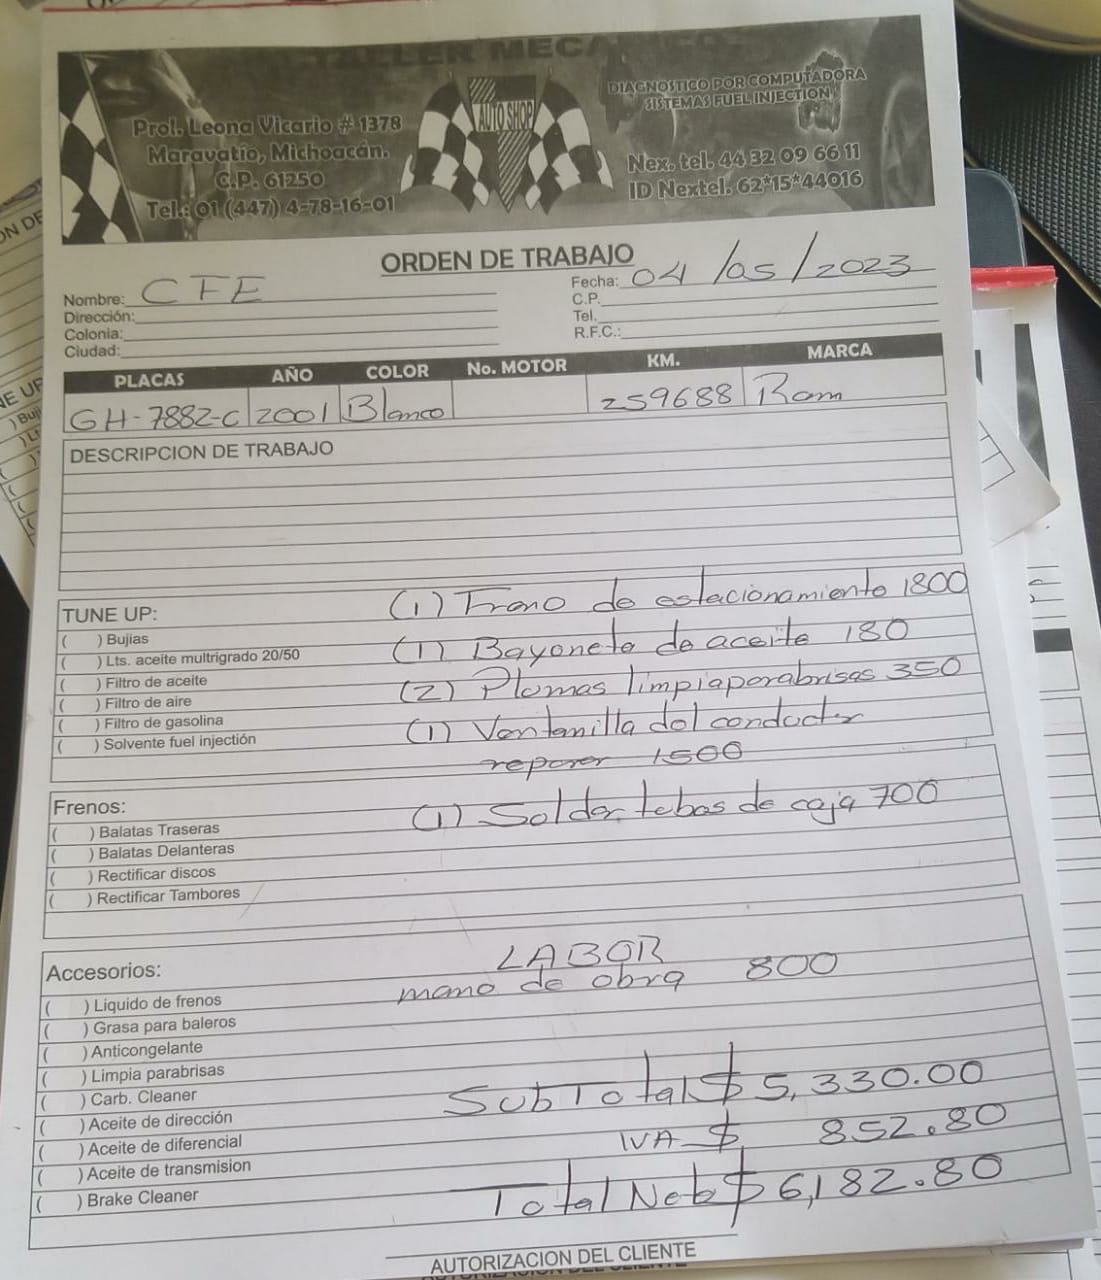 TALLER MECANICO
Prol. Leona Vicario # 1378
Maravatío, Michoacán.
C.P. 61250
Tel.: 01 (447) 4-78-16-01
AUTO SHOP
DIAGNOSTICO POR COMPUTADORA
SISTEMAS FUEL INJECTION
Nex. tel. 44 32 09 66 11
ID Nextel. 62*15*44016
ORDEN DE TRABAJO
Nombre: CFE
Dirección:
Colonia:
Ciudad:
Fecha: 04/05/2023
C.P.
Tel.
R.F.C.:
PLACAS AÑO COLOR No. MOTOR KM. MARCA
GH-7882-C 2001 Blanco 259688 Ram
DESCRIPCION DE TRABAJO
TUNE UP:
( ) Bujias
( ) Lts. aceite multrigrado 20/50
( ) Filtro de aceite
( ) Filtro de aire
( ) Filtro de gasolina
( ) Solvente fuel injectión
(1) Freno de estacionamiento 1800
(1) Bayoneta de aceite 180
(2) Plumas limpiaparabrisas 350
(1) Ventanilla del conductor
reparar 1500
Frenos:
( ) Balatas Traseras
( ) Balatas Delanteras
( ) Rectificar discos
( ) Rectificar Tambores
(1) Soldar tubos de caja 700
Accesorios:
( ) Liquido de frenos
( ) Grasa para baleros
( ) Anticongelante
( ) Limpia parabrisas
( ) Carb. Cleaner
( ) Aceite de dirección
( ) Aceite de diferencial
( ) Aceite de transmision
( ) Brake Cleaner
LABOR
mano de obra 800
SubTotal $ 5,330.00
IVA $ 852.80
Total Neto $ 6,182.80
AUTORIZACION DEL CLIENTE